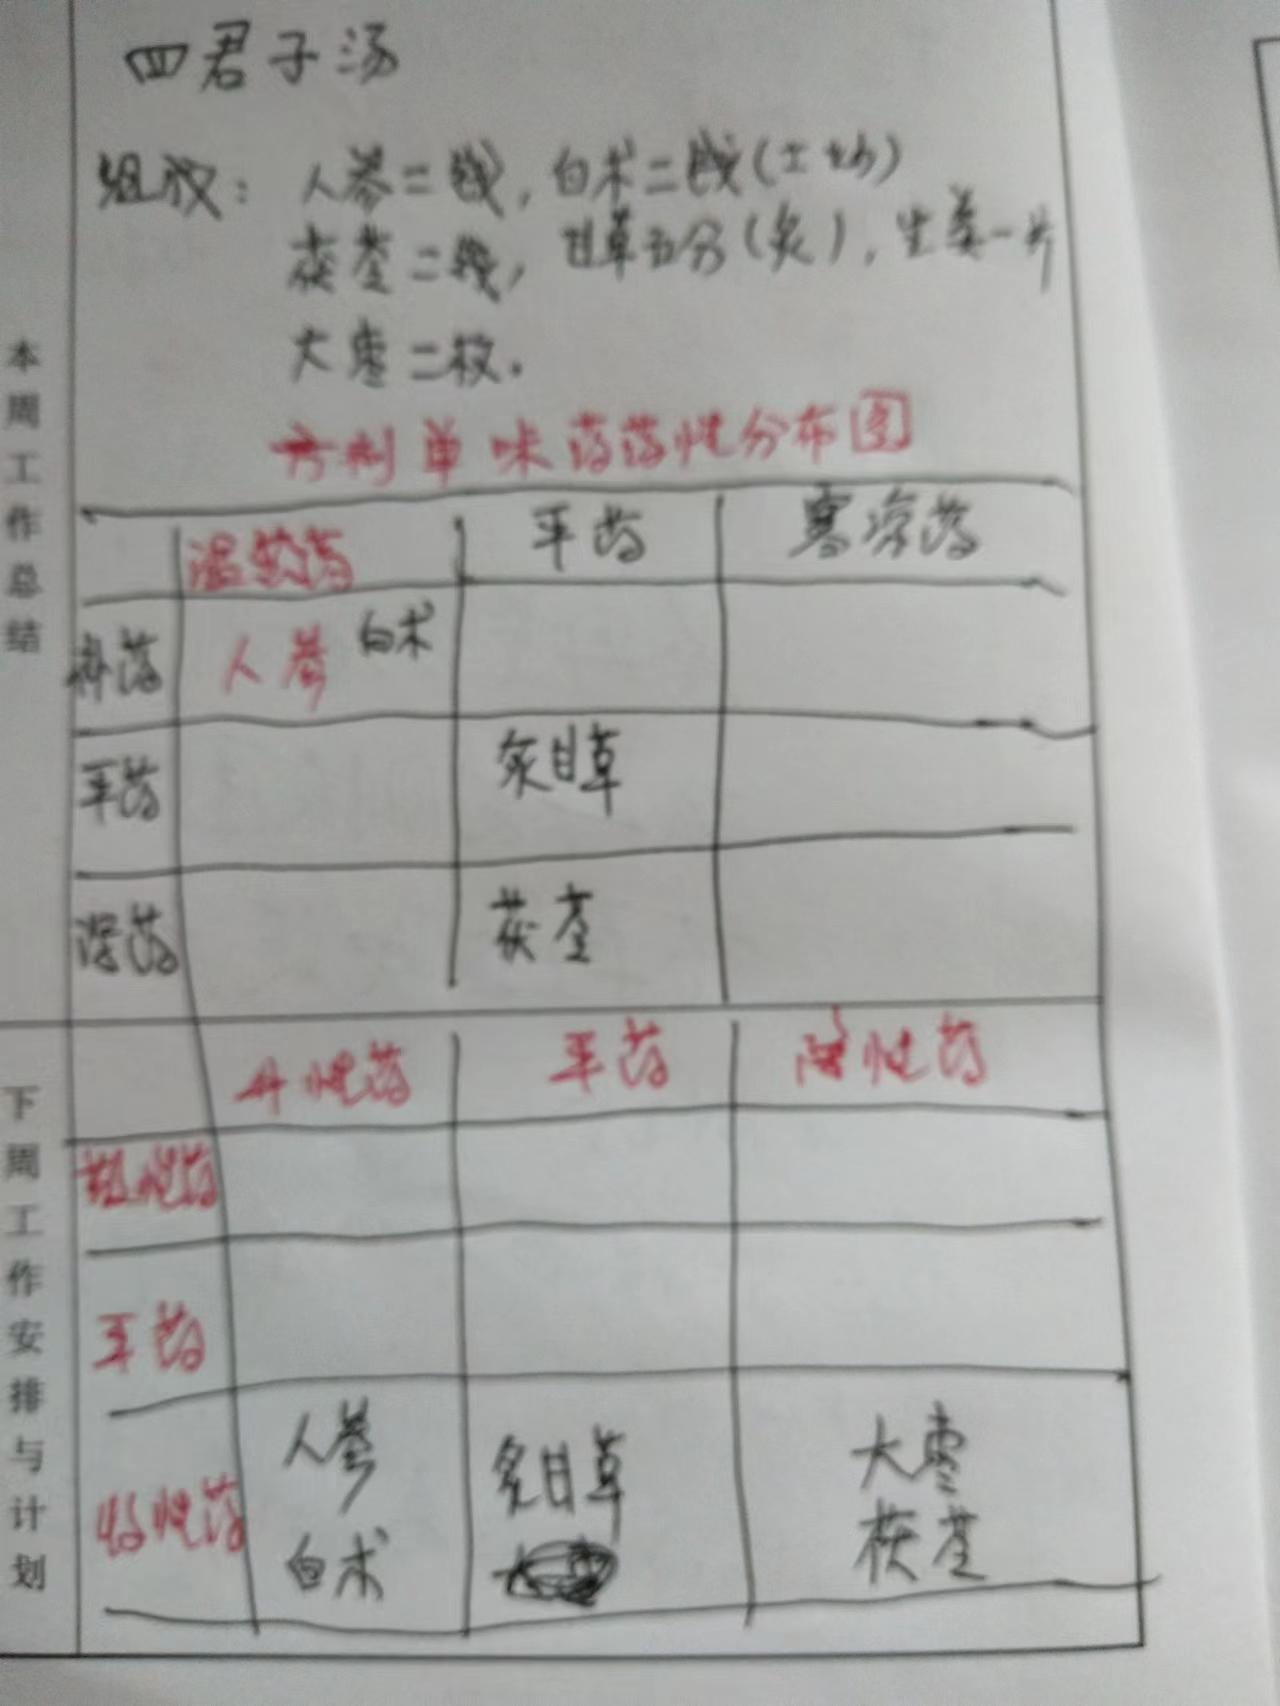 四君子汤
组成：人参二钱，白术二钱(土炒)
茯苓二钱，甘草五分(炙)，生姜一片
大枣二枚.
方剂单味药药性分布图
温热药 平药 寒凉药
补药 人参 白术
平药 炙甘草
泻药 茯苓
升性药 平药 降性药
散性药
平药
收性药 人参 炙甘草 大枣
白术 茯苓
本周工作总结
下周工作安排与计划